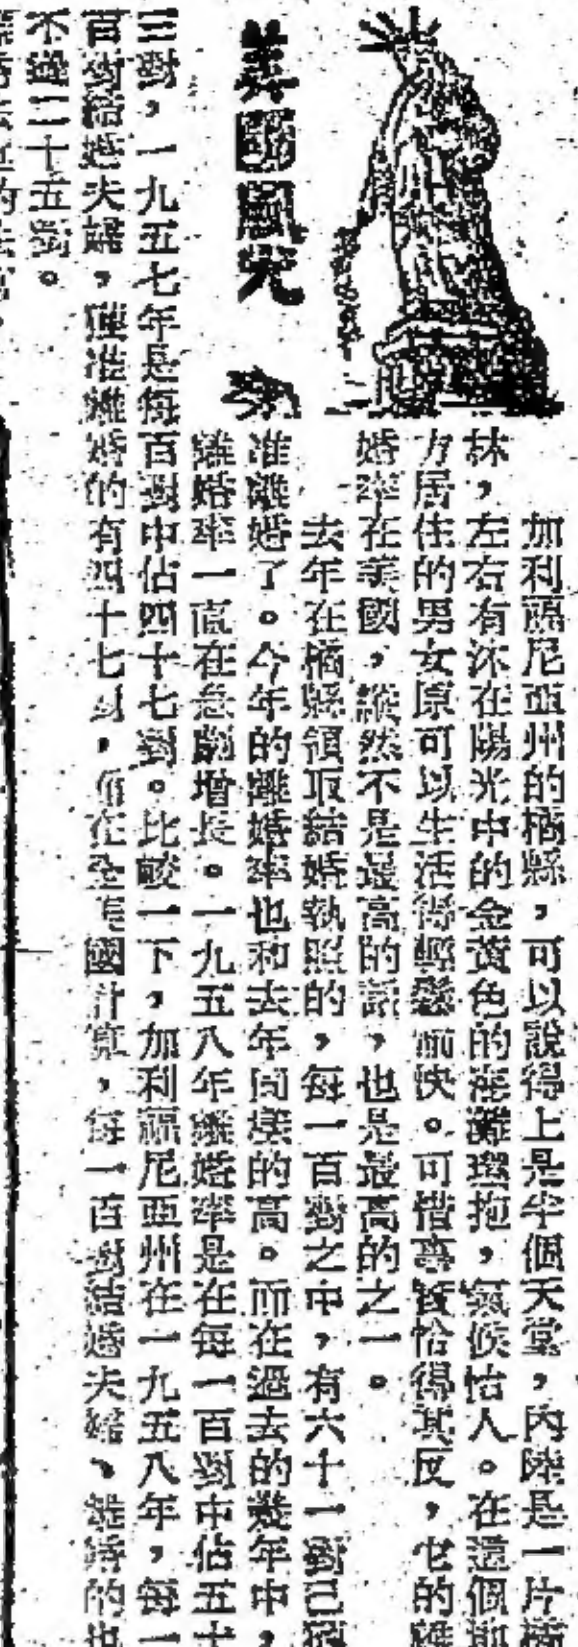 美國風光
加利福尼亞州的橘縣，可以說得上是半個天堂，內陸是一片橘
林，左右有沐在陽光中的金黃色的海灘環抱，氣候怡人。在這個地
方居住的男女原可以生活得輕鬆愉快。可惜事實恰得其反，它的離
婚率在美國，縱然不是最高的話，也是最高的之一。
去年在橘縣領取結婚執照的，每一百對之中，有六十一對已獲
准離婚了。今年的離婚率也和去年同樣的高。而在過去的幾年中，
離婚率一直在急劇增長。一九五八年離婚率是在每一百對中佔五十
三對，一九五七年是每百對中佔四十七對。比較一下，加利福尼亞州在一九五八年，每一
百對結婚夫婦，獲准離婚的有四十七對，而在全美國計算，每一百對結婚夫婦，離婚的也
不過二十五對。